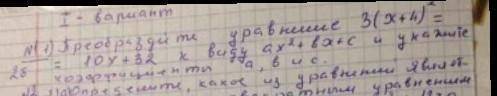 I - вариант
N(1) Преобразуйте уравнение 3(x+4)²=
= 10x+32 к виду ax²+bx+c и укажите
коэффициенты a, в и с.
Определите, какое из уравнений являет-
уравнением